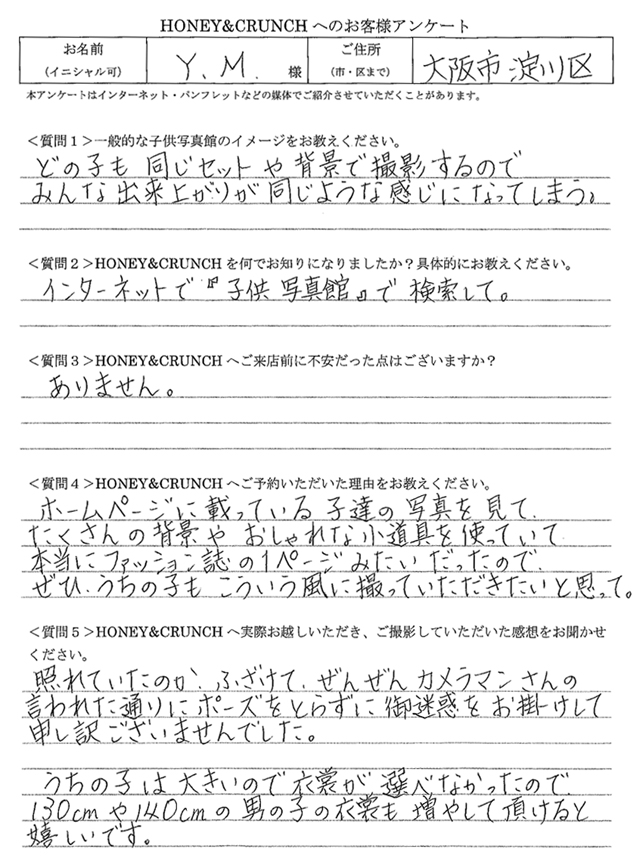 HONEY&CRUNCH へのお客様アンケート
お名前
(イニシャル可)
Y. M. 様
ご住所
(市・区まで)
大阪市 淀川区
本アンケートはインターネット・パンフレットなどの媒体でご紹介させていただくことがあります。
＜質問１＞一般的な子供写真館のイメージをお教えください。
どの子も 同じセット や 背景で 撮影するので
みんな 出来上がりが 同じような 感じに なってしまう。
＜質問２＞HONEY&CRUNCH を何でお知りになりましたか？具体的にお教えください。
インターネットで『子供 写真館』で 検索して。
＜質問３＞HONEY&CRUNCH へご来店前に不安だった点はございますか？
ありません。
＜質問４＞HONEY&CRUNCH へご予約いただいた理由をお教えください。
ホームページに 載っている 子達の 写真を 見て、
たくさんの 背景や おしゃれな 小道具を 使っていて
本当に ファッション誌の 1ページ みたい だったので、
ぜひ、うちの子も こういう 風に 撮っていただきたい と思って。
＜質問５＞HONEY&CRUNCH へ実際お越しいただき、ご撮影していただいた感想をお聞かせ
ください。
照れていたのか、ふざけて、ぜんぜん カメラマン さんの
言われた 通りに ポーズを とらずに 御迷惑を お掛けして
申し訳ございませんでした。
うちの子は 大きいので 衣裳が 選べなかったので、
130cm や 140cm の 男の子の 衣裳も 増やして 頂けると
嬉しいです。